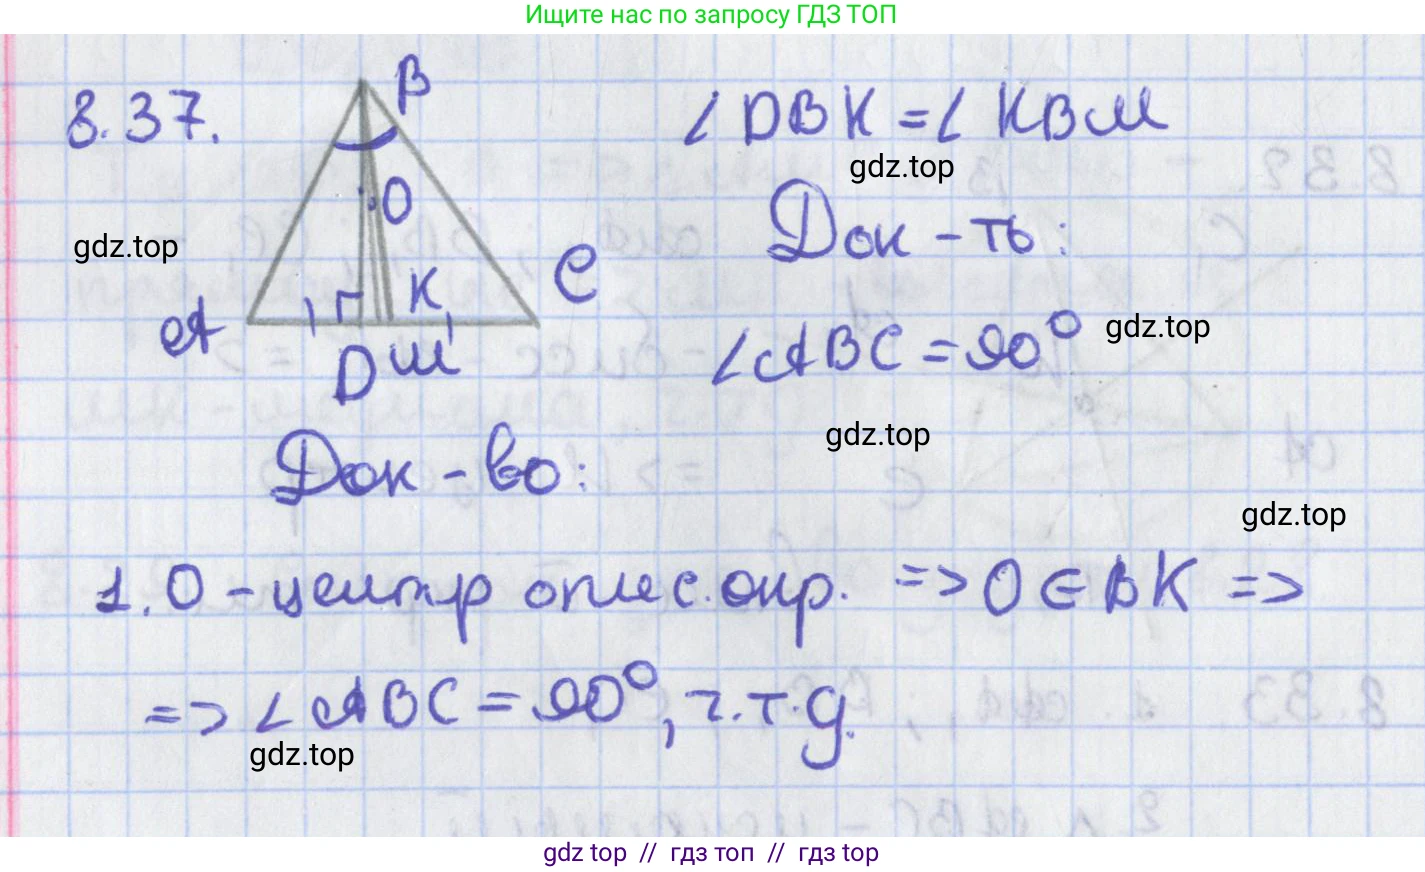 Ищите нас по запросу ГДЗ ТОП
8.37.
B
∠ DBK = ∠ KBM
gdz.top
O
Док-ть:
gdz.top
C
K
A
D M
∠ ABC = 90°
gdz.top
gdz.top
Док-во:
gdz.top
1. O - центр опис. окр. => O ∈ BK =>
=> ∠ ABC = 90°, ч.т.д.
gdz.top
gdz top // гдз топ // gdz top